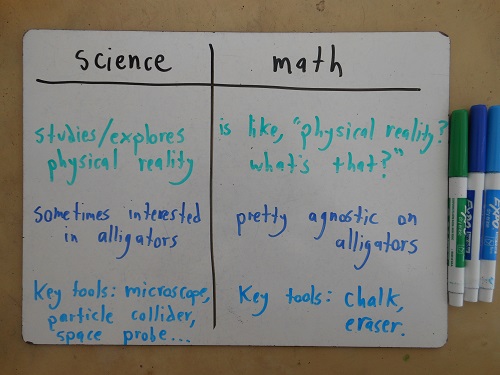 science
math
studies/explores
physical reality
is like, "physical reality?
what's that?"
sometimes interested
in alligators
pretty agnostic on
alligators
Key tools: microscope,
particle collider,
space probe...
Key tools: chalk,
eraser.
EXPO